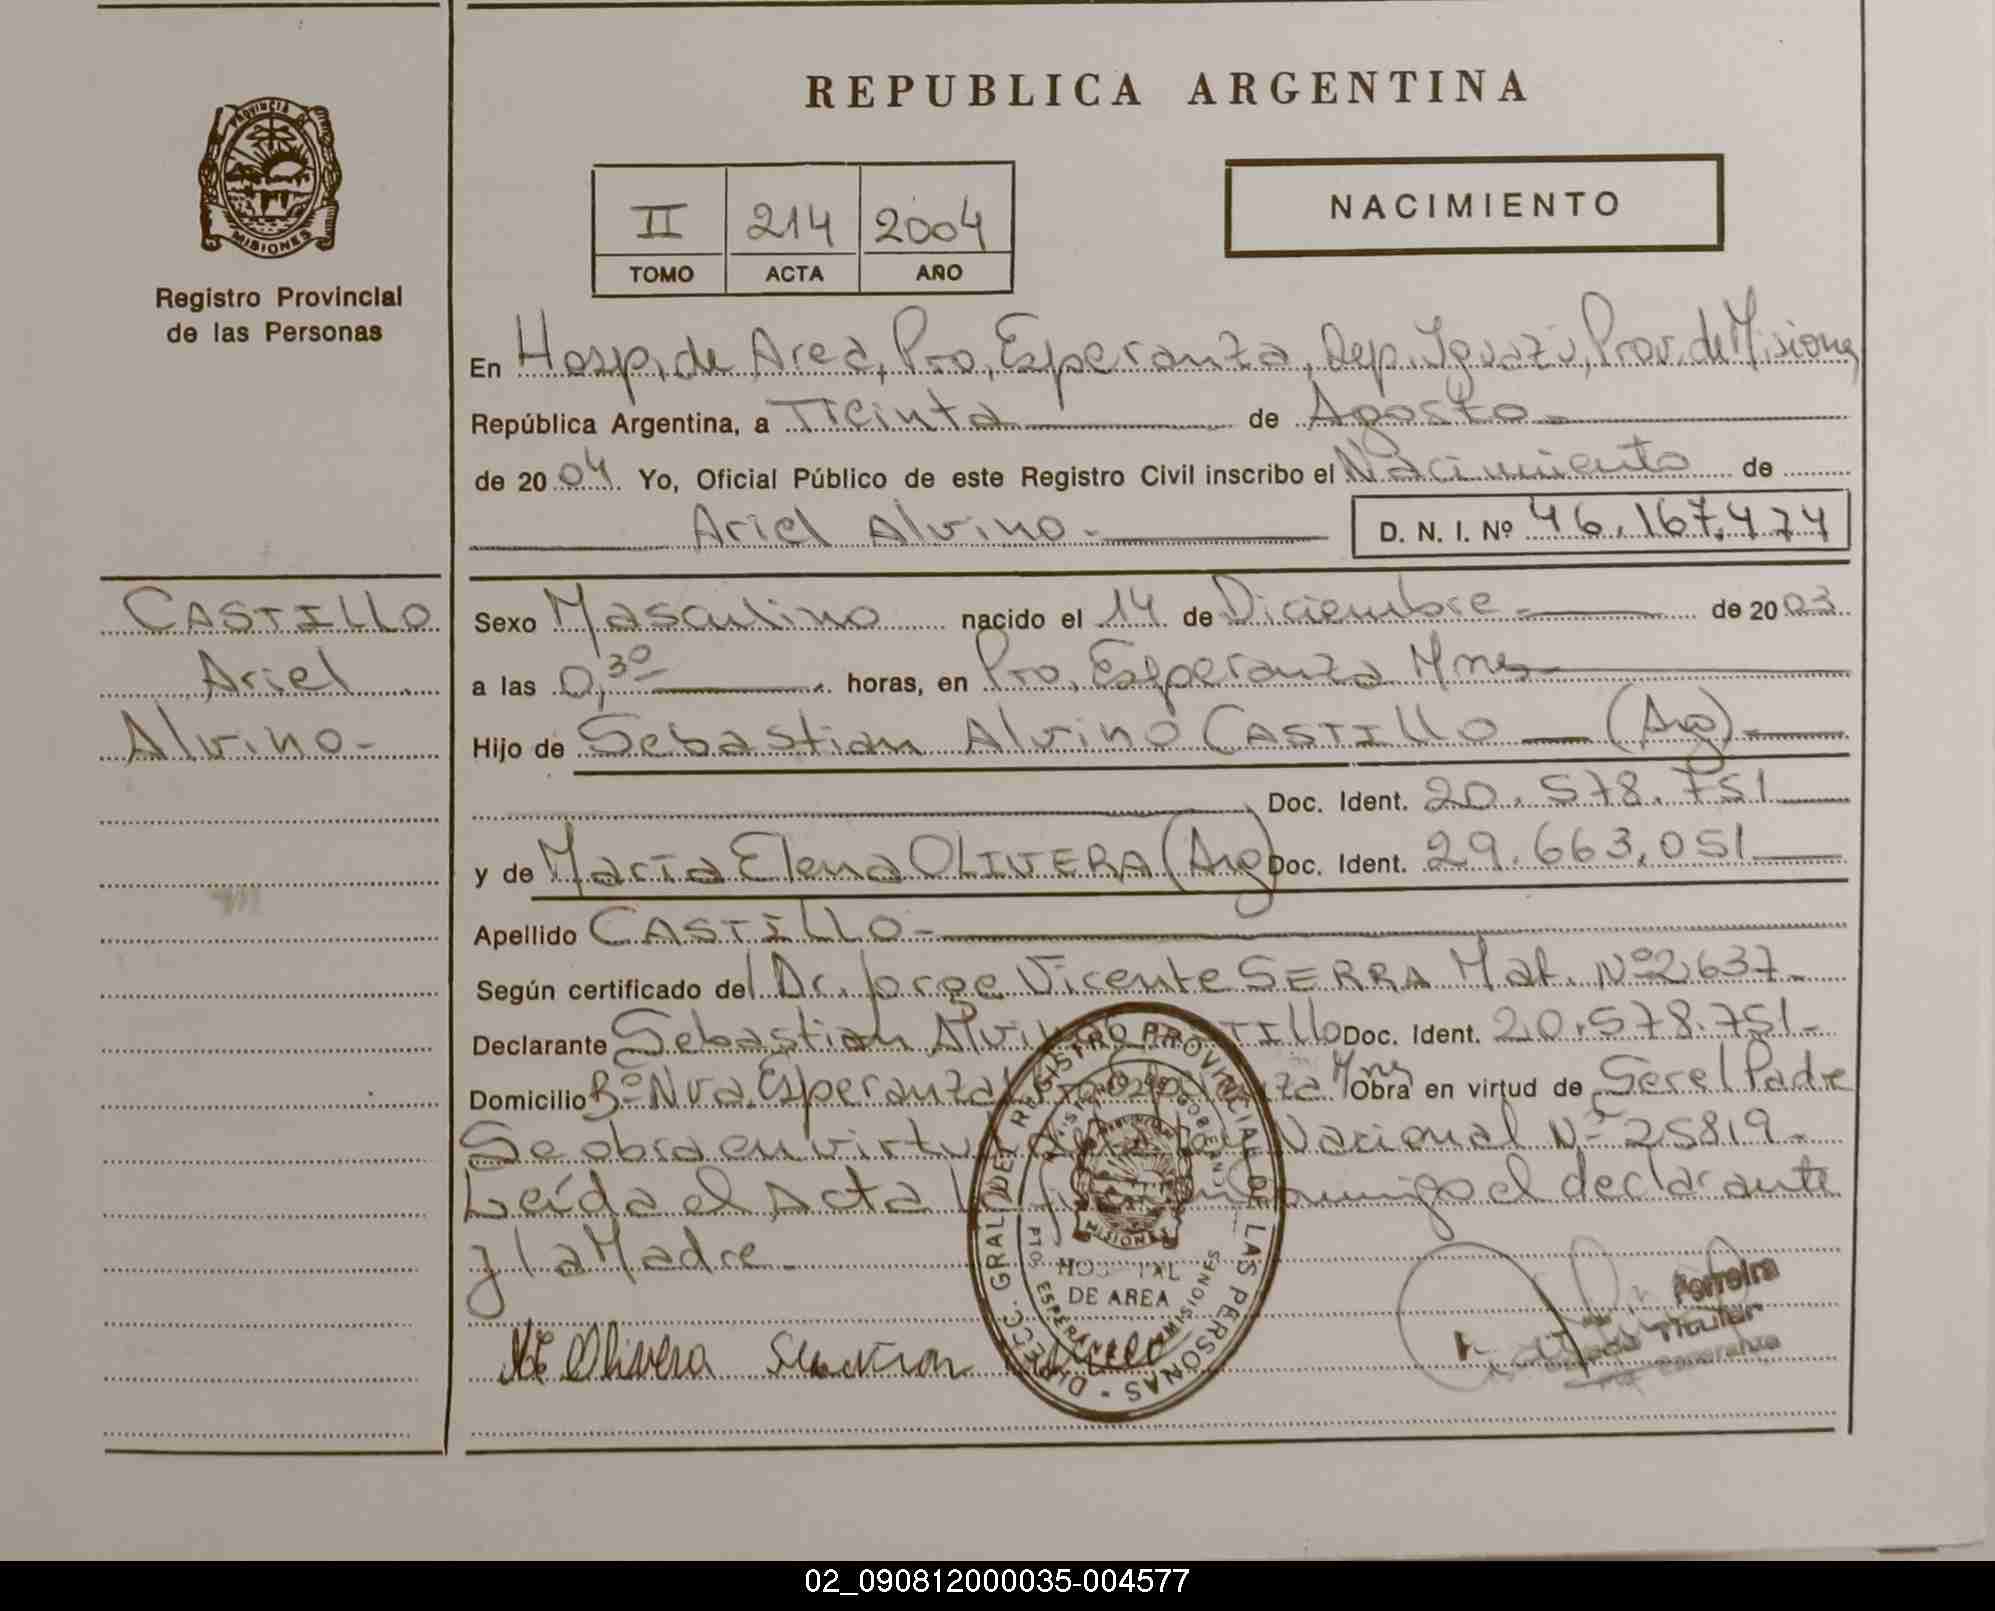 REPUBLICA ARGENTINA
PROVINCIA DE
MISIONES
Registro Provincial
de las Personas
II 214 2004
TOMO ACTA AÑO
NACIMIENTO
En Hosp. de Area, Pto, Esperanza, Dep. Iguazú, Prov. de Misiones
República Argentina, a Treinta de Agosto
de 2004 Yo, Oficial Público de este Registro Civil inscribo el Nacimiento de
Ariel Alvino
D. N. I. Nº 46.167.474
CASTILLO
Ariel
Alvino
Sexo Masculino nacido el 14 de Diciembre de 2003
a las 0,30 horas, en Pto. Esperanza Mnes
Hijo de Sebastian Alvino CASTILLO (Arg)
Doc. Ident. 20.578.751
y de María Elena OLIVERA (Arg) Doc. Ident. 29.663.051
Apellido CASTILLO
Según certificado del Dr. Jorge Vicente SERRA Mat. Nº 2637
Declarante Sebastian Alvino CASTILLO Doc. Ident. 20.578.751
Domicilio Bº Nva. Esperanza Pto Esperanza Mnes Obra en virtud de Ser el Padre
Se obra en virtud de la Ley Nacional Nº 25819
Leída el Acta la conmigo el declarante
y la Madre
DIRECC. GRAL. DEL REGISTRO PROVINCIAL DE LAS PERSONAS
HOSPITAL
DE AREA
PTO. ESPERANZA MISIONES
Mª Olivera
Ferreira
Titular
Esperanza
02_090812000035-004577